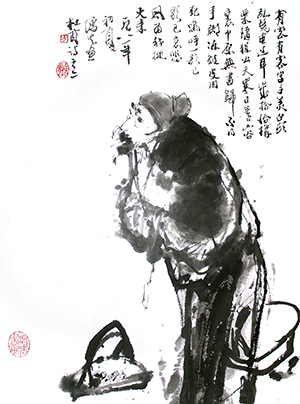 有客有客字子美白頭
亂髮垂過耳歲拾橡
栗隨狙公天寒日暮山谷
裏中原無書歸不得
手腳凍皴皮肉
死嗚呼一歌兮
歌已哀悲
風為我從
天來
一九八一年
杜甫詩意